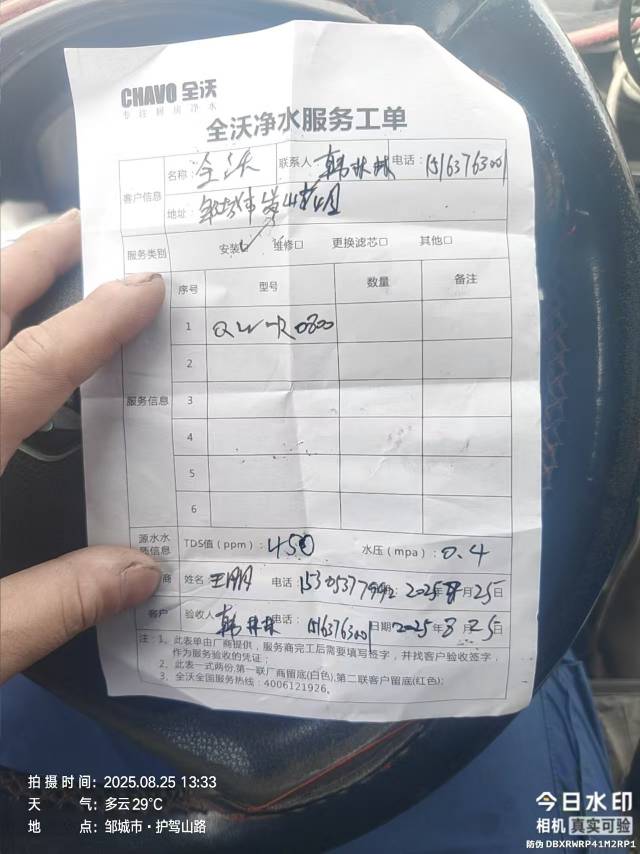 CHAVO 全沃
专注厨房净水
全沃净水服务工单
客户信息 名称: 全沃 联系人: 韩林林 电话:
地址: 邹城市
服务类别 安装☑ 维修□ 更换滤芯□ 其他□
服务信息 序号 型号 数量 备注
1 QWR0800
2
3
4
5
6
源水水质信息 TDS值(ppm): 450 水压(mpa): 0.4
商 姓名 王明 电话 2025年8月25日
客户 验收人 韩林林 电话: 日期 2025年8月25日
注:1、此表单由厂商提供,服务商完工后需要填写签字,并找客户验收签字,
作为服务验收的凭证;
2、此表一式两份,第一联厂商留底(白色),第二联客户留底(红色);
3、全沃全国服务热线:4006121926。
拍摄时间: 2025.08.25 13:33
天 气: 多云29℃
地 点: 邹城市·护驾山路
今日水印
相机 真实可验
防伪 DBXRWRP41M2RP1